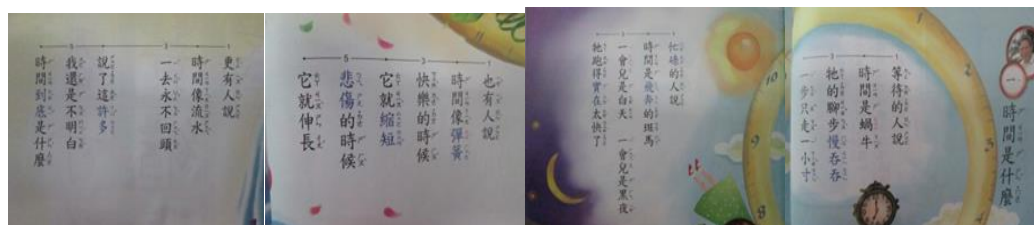 一 時間是什麼
等待的人說
時間是蝸牛
牠的腳步慢吞吞
一步只走一小寸
忙碌的人說
時間是飛奔的斑馬
一會兒是白天 一會兒是黑夜
牠跑得實在太快了
也有人說
時間像彈簧
快樂的時候
它就縮短
悲傷的時候
它就伸長
更有人說
時間像流水
一去永不回頭
說了這許多
我還是不明白
時間到底是什麼
1
2
3
10
9
8